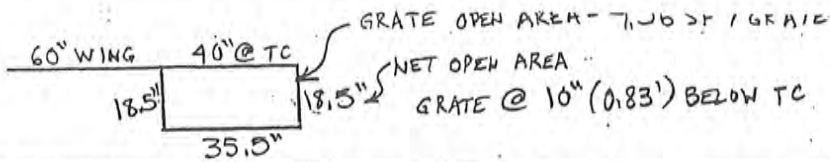 GRATE OPEN AREA -
60" WING 40" @ TC
NET OPEN AREA
18.5" 18.5" GRATE @ 10" (0.83') BELOW TC
35.5"